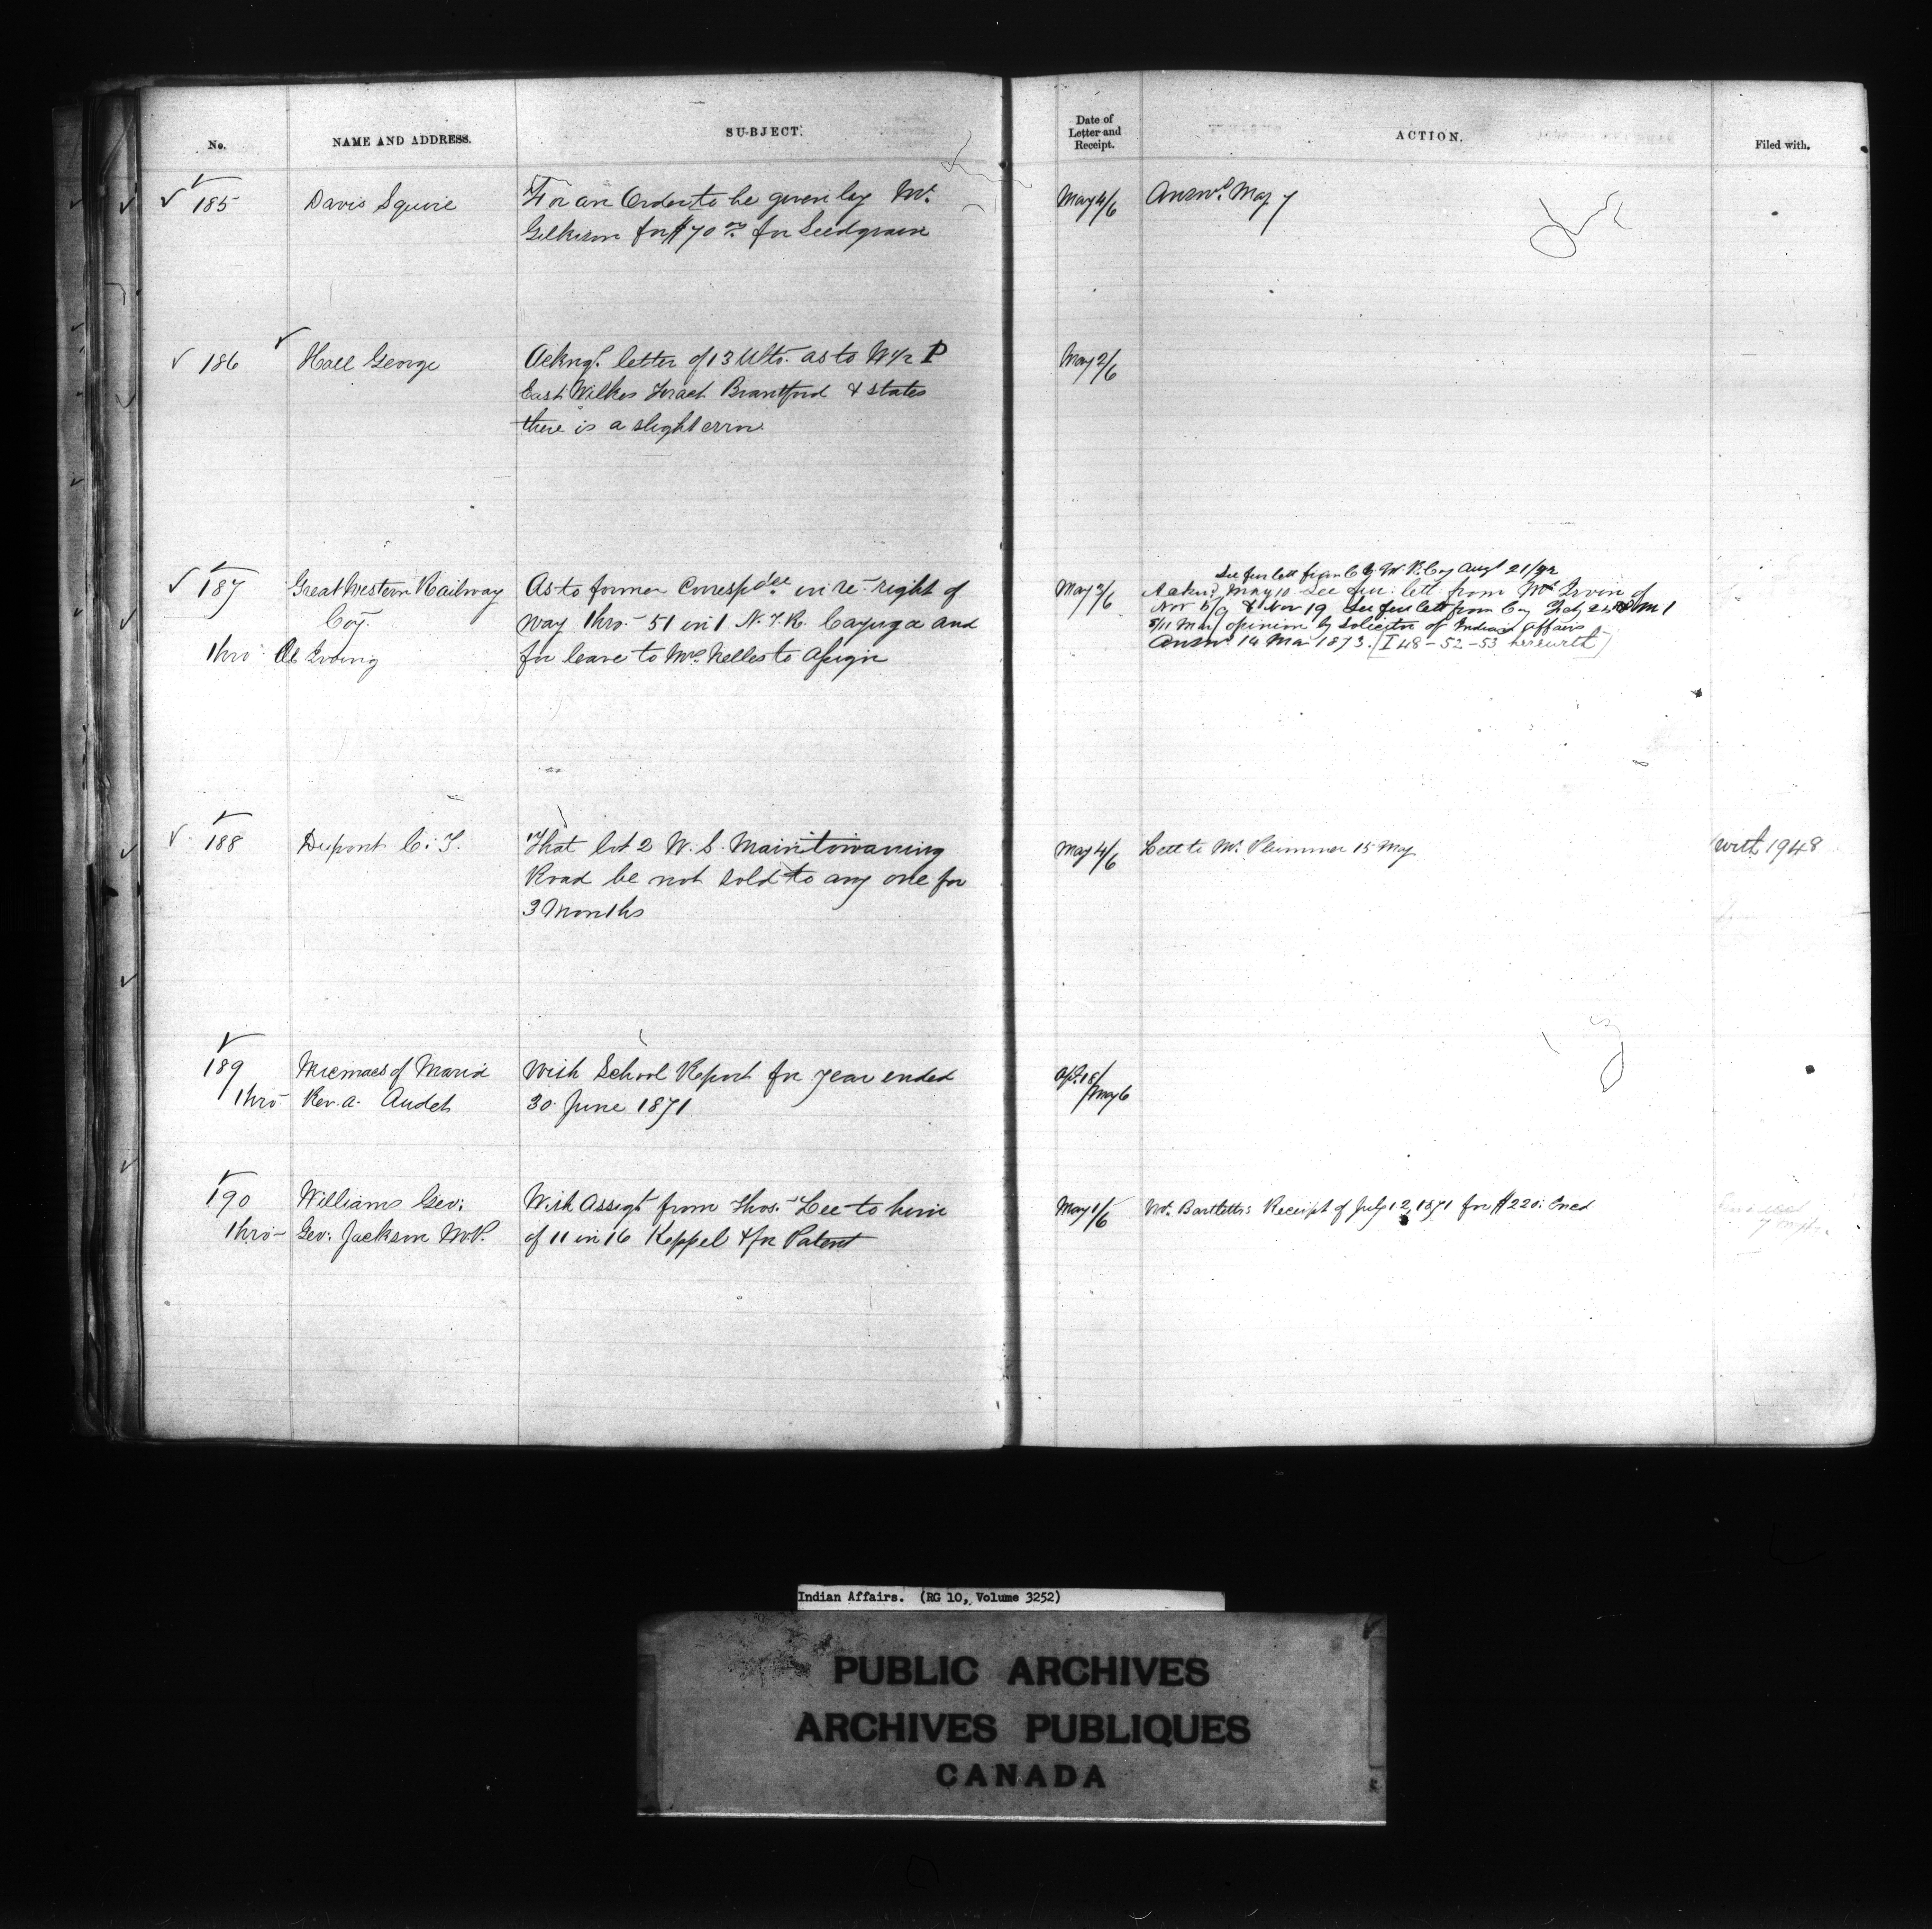 No.
NAME AND ADDRESS.
SUBJECT.
Date of
Letter and
Receipt.
ACTION.
Filed with.
185
Davis Squire
For an Order to be given by Mr.
Gilkison for $70.00 for Seed grain
May 4/6
Answd. May 7
186
Hall George
Ackngs. letter of 13 Ulto. as to W 1/2 P
East Wilkes Tract Brantford & states
there is a slight error
May 2/6
187
Great Western Railway
Coy.
thro Æ Irving
As to former Correspdce. in re right of
way thro. 51 in 1 N.T.R. Cayuga and
for leave to Mrs. Nelles to assign
May 3/6
See fur lett from G. W. R. Coy Augt 21/72
Acknd. May 10 See fur. lett. from Mr. Irvin of
Nov 5/9 & Nov 19 See fur lett from Coy Feby
8/11 Mar/ opinion by Solicitor of Indian Affairs
Answd 14 Mar 1873. [I 48-52-53 herewith]
188
Dupont C. T.
That lot 2 W. S. Manitowaning
Road be not sold to any one for
3 Months
May 4/6
Lett to Mr. Plummer 15 May
with 1948
189
thro
Micmacs of Maria
Rev. A. Audet
With School Report for year ended
30 June 1871
Apl. 18/
May 6
190
thro
Williams Geo:
Geo. Jackson M.P.
With Assigt from Thos. Lee to him
of 11 in 16 Keppel & for Patent
May 1/6
Mr. Bartlett's Receipt of July 12, 1871 for $220. Encd
Indian Affairs. (RG 10, Volume 3252)
PUBLIC ARCHIVES
ARCHIVES PUBLIQUES
CANADA